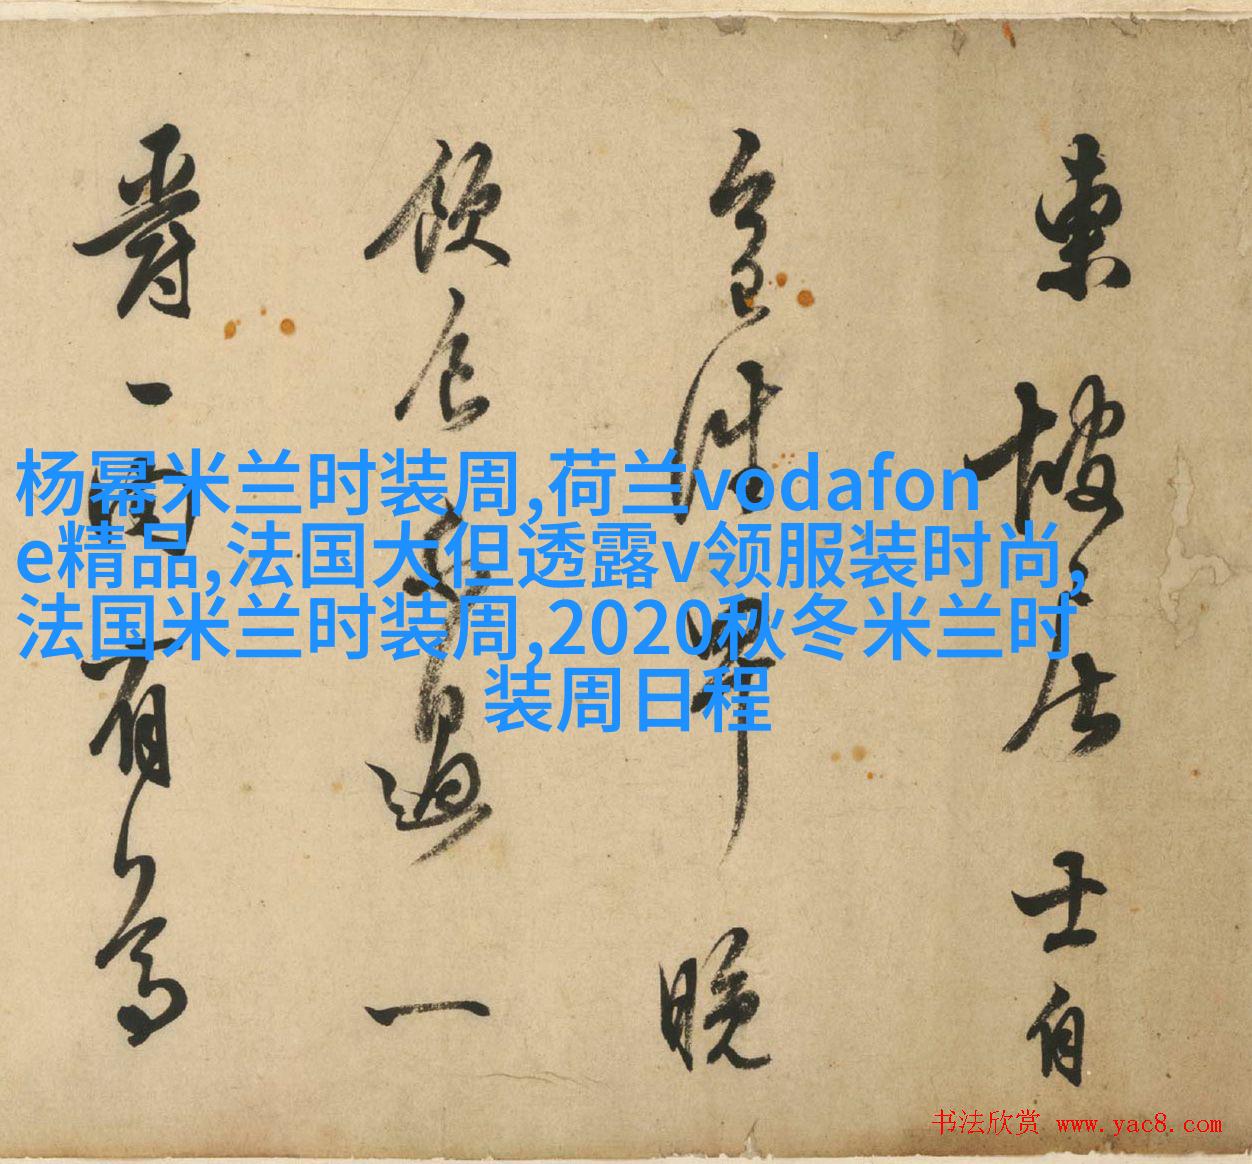 東坡居士自
今日以往早晚
飲食不過一
爵一肉有
杨幂米兰时装周,荷兰vodafon
e精品,法国大但透露v领服装时尚,
法国米兰时装周,2020秋冬米兰时
装周日程
书法欣赏 www.yac8.com